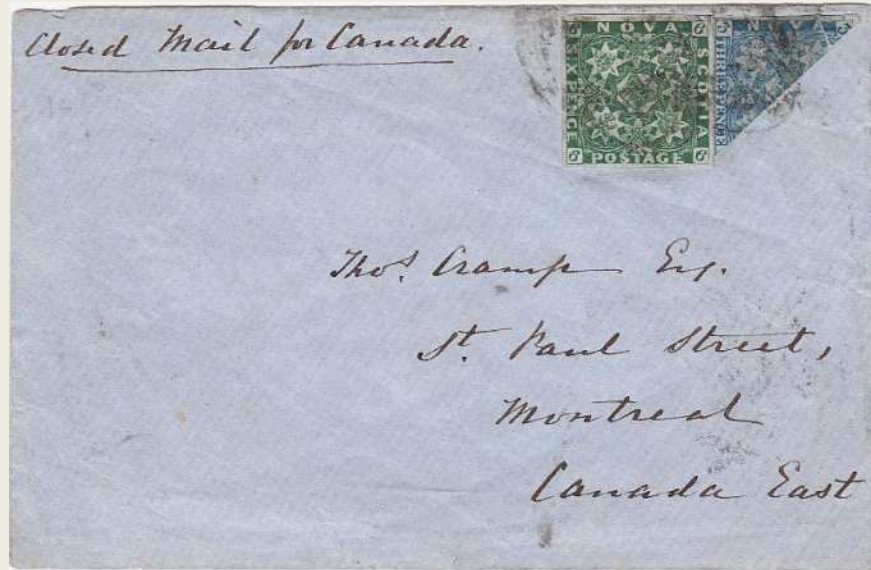 Closed Mail for Canada.
NOVA SCOTIA POSTAGE SIX PENCE
6 6 6 6
NOVA
THREE PENCE
3 3
Thos. Cramp Esq.
St. Paul Street,
Montreal
Canada East